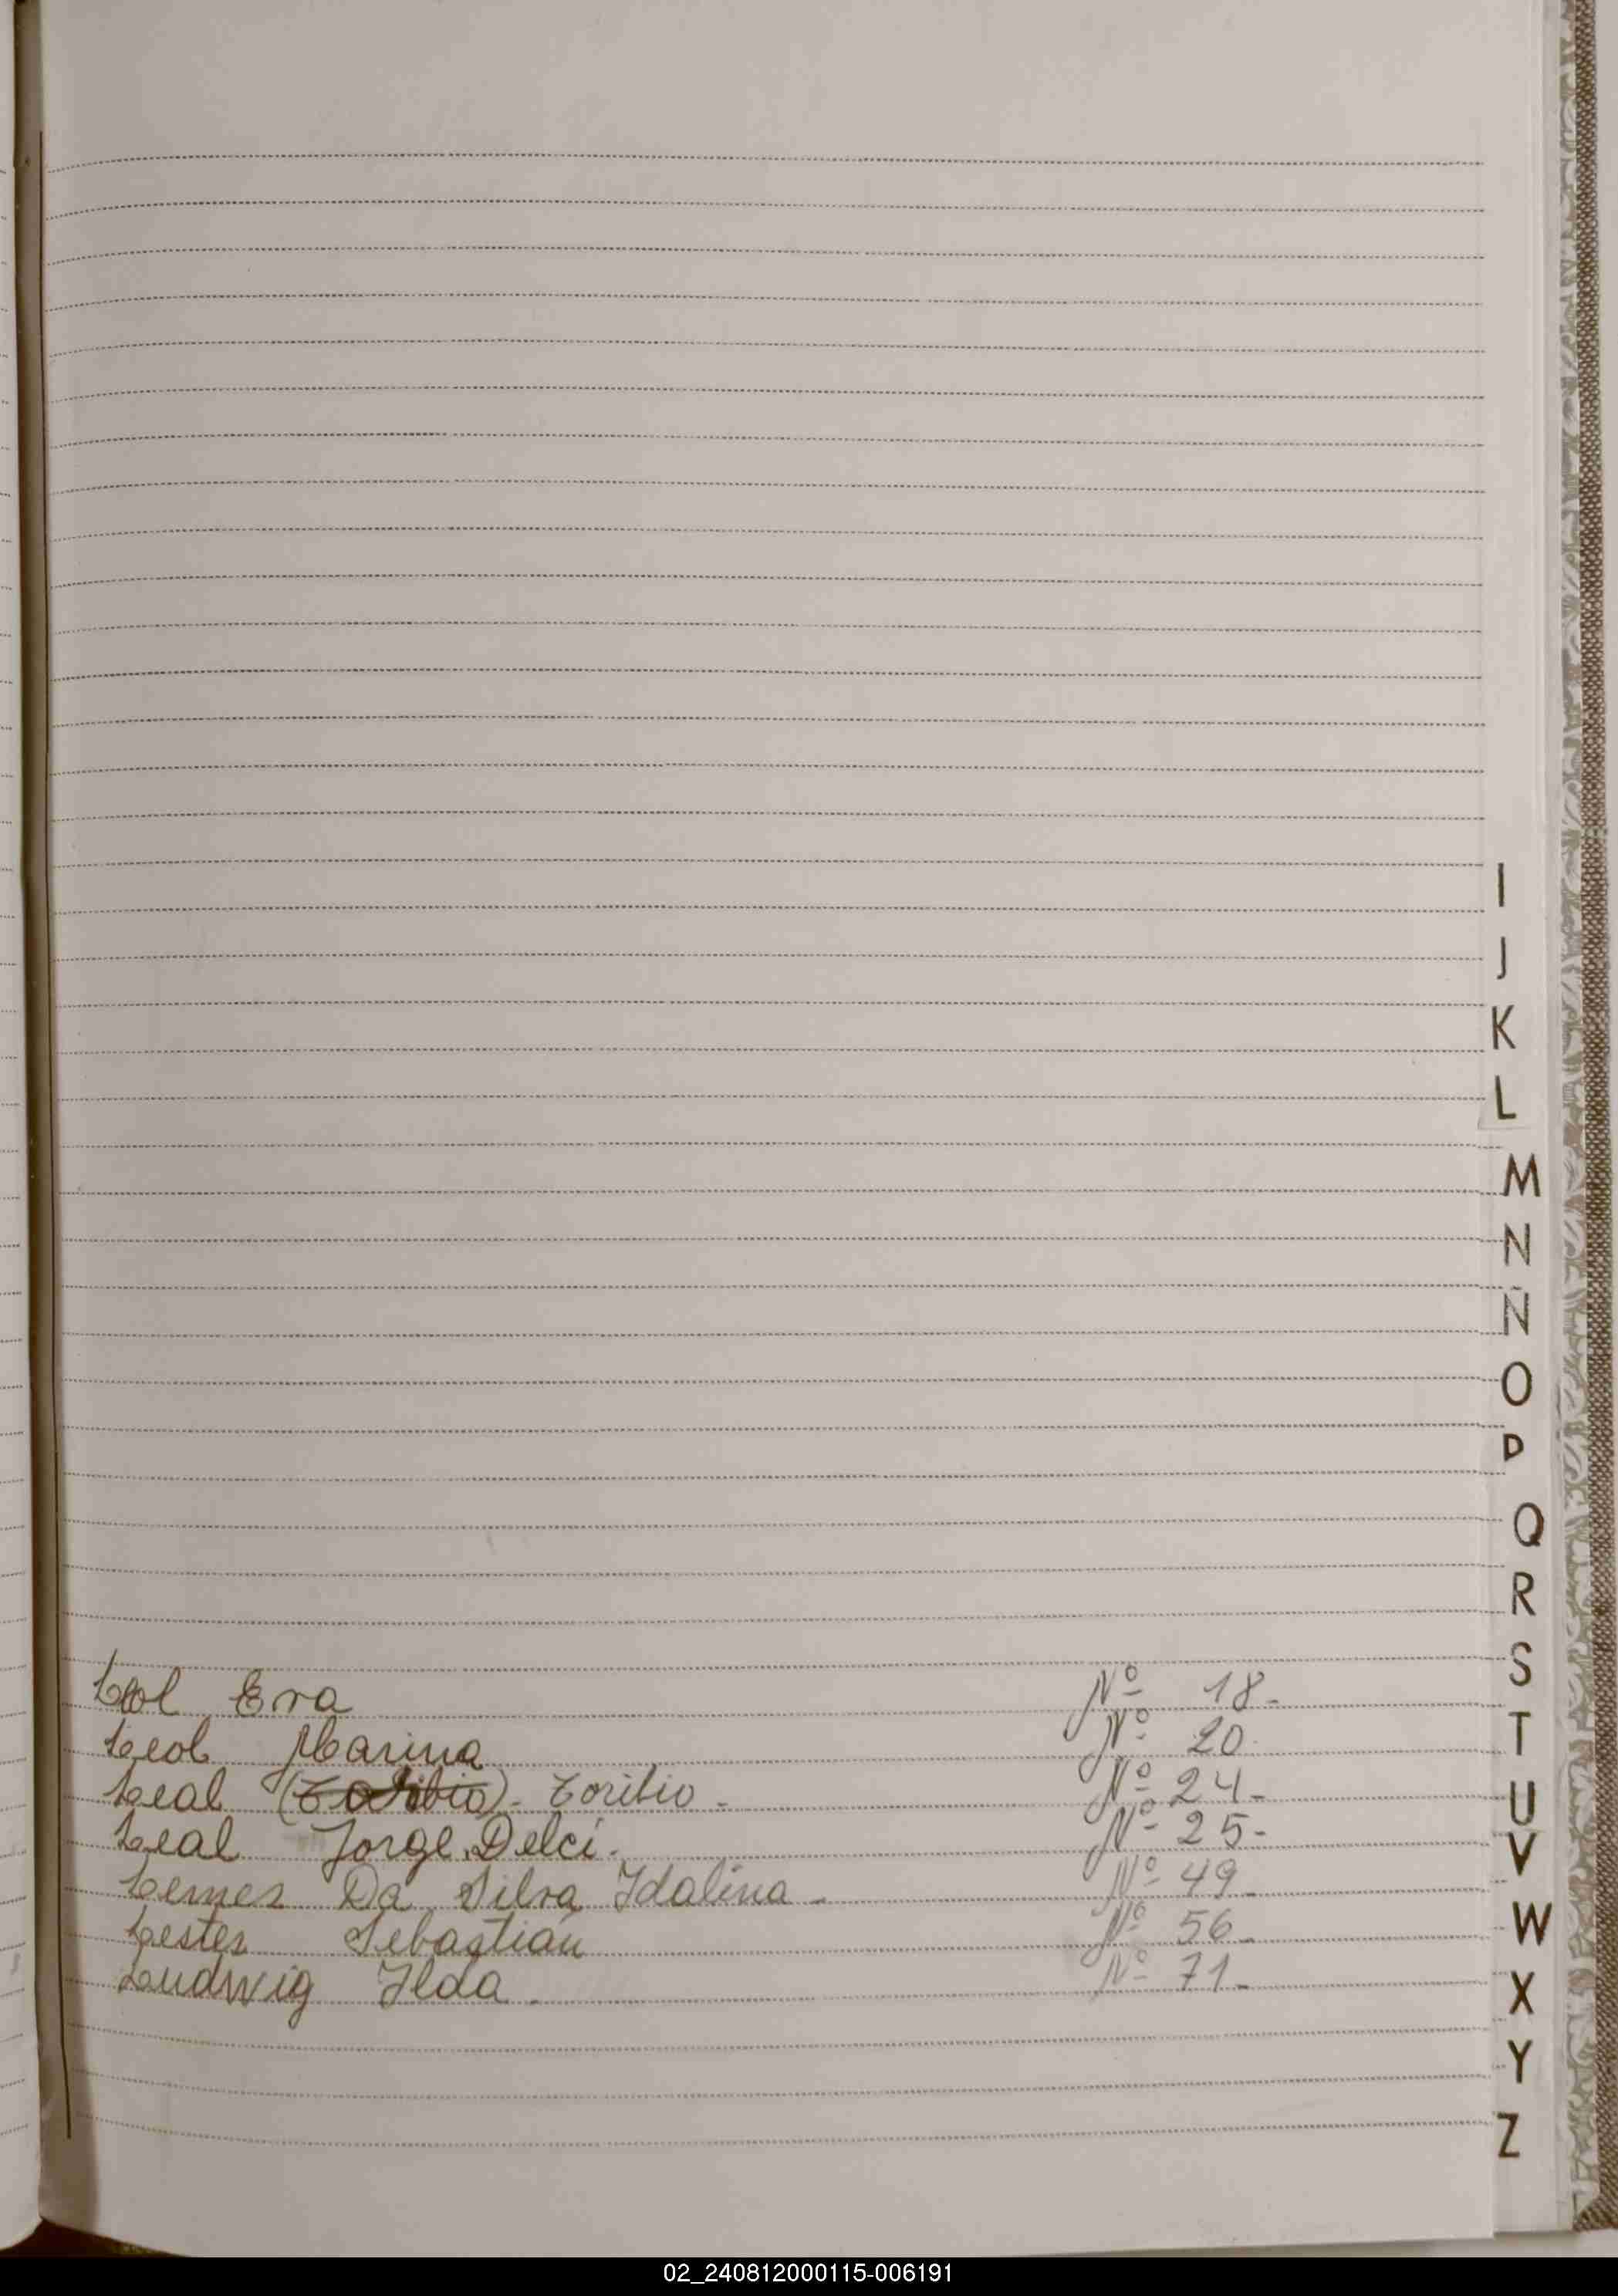 I
J
K
L
M
N
Ñ
O
P
Q
R
S
Leol Eva Nº 18-
T
Leol Marina Nº 20
Leal (Toribio)- Toribio - Nº 24-
U
Leal Jorge Delci. Nº 25-
V
Lemes Da Silva Idalina - Nº 49
W
Lester Sebastián Nº 56-
Ludwig Ilda - Nº 71-
X
Y
Z
02_240812000115-006191